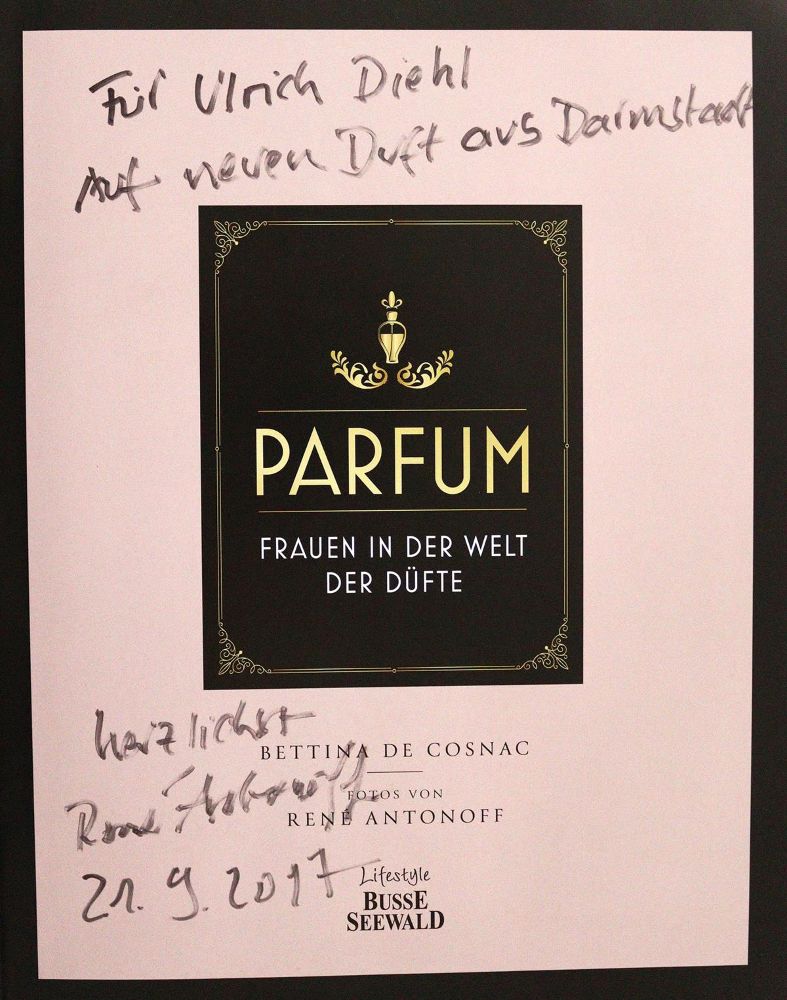 Für Ulrich Diehl
Auf neuen Duft aus Darmstadt
PARFUM
FRAUEN IN DER WELT
DER DÜFTE
herzlichst
BETTINA DE COSNAC
FOTOS VON
René Antonoff
RENÉ ANTONOFF
21.9.2017
Lifestyle
BUSSE
SEEWALD